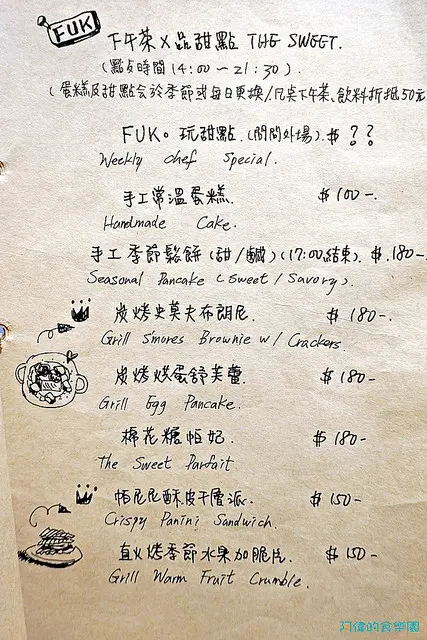 FUK
下午茶 X 品甜點 THE SWEET.
(點餐時間 14:00 ~ 21:30).
(蛋糕及甜點會於季節或每日更換/凡點下午茶、飲料折抵50元
FUK。玩甜點.(問問外場).$ ??
Weekly chef Special.
手工常溫蛋糕. $100-.
Handmade Cake.
手工季節鬆餅(甜/鹹)(17:00結束). $.180-.
Seasonal Pancake (Sweet/Savory).
炭烤史莫夫布朗尼. $180-.
Grill S'mores Brownie w/ Crackers.
炭烤烘蛋舒芙蕾 $180-
Grill Egg Pancake.
棉花糖帕妃. $180-
The Sweet Parfait
帕尼尼酥皮千層派. $150-
Crispy Panini Sandwich.
直火烤季節水果加脆片. $150-
Grill Warm Fruit Crumble.
阿偉的食樂園